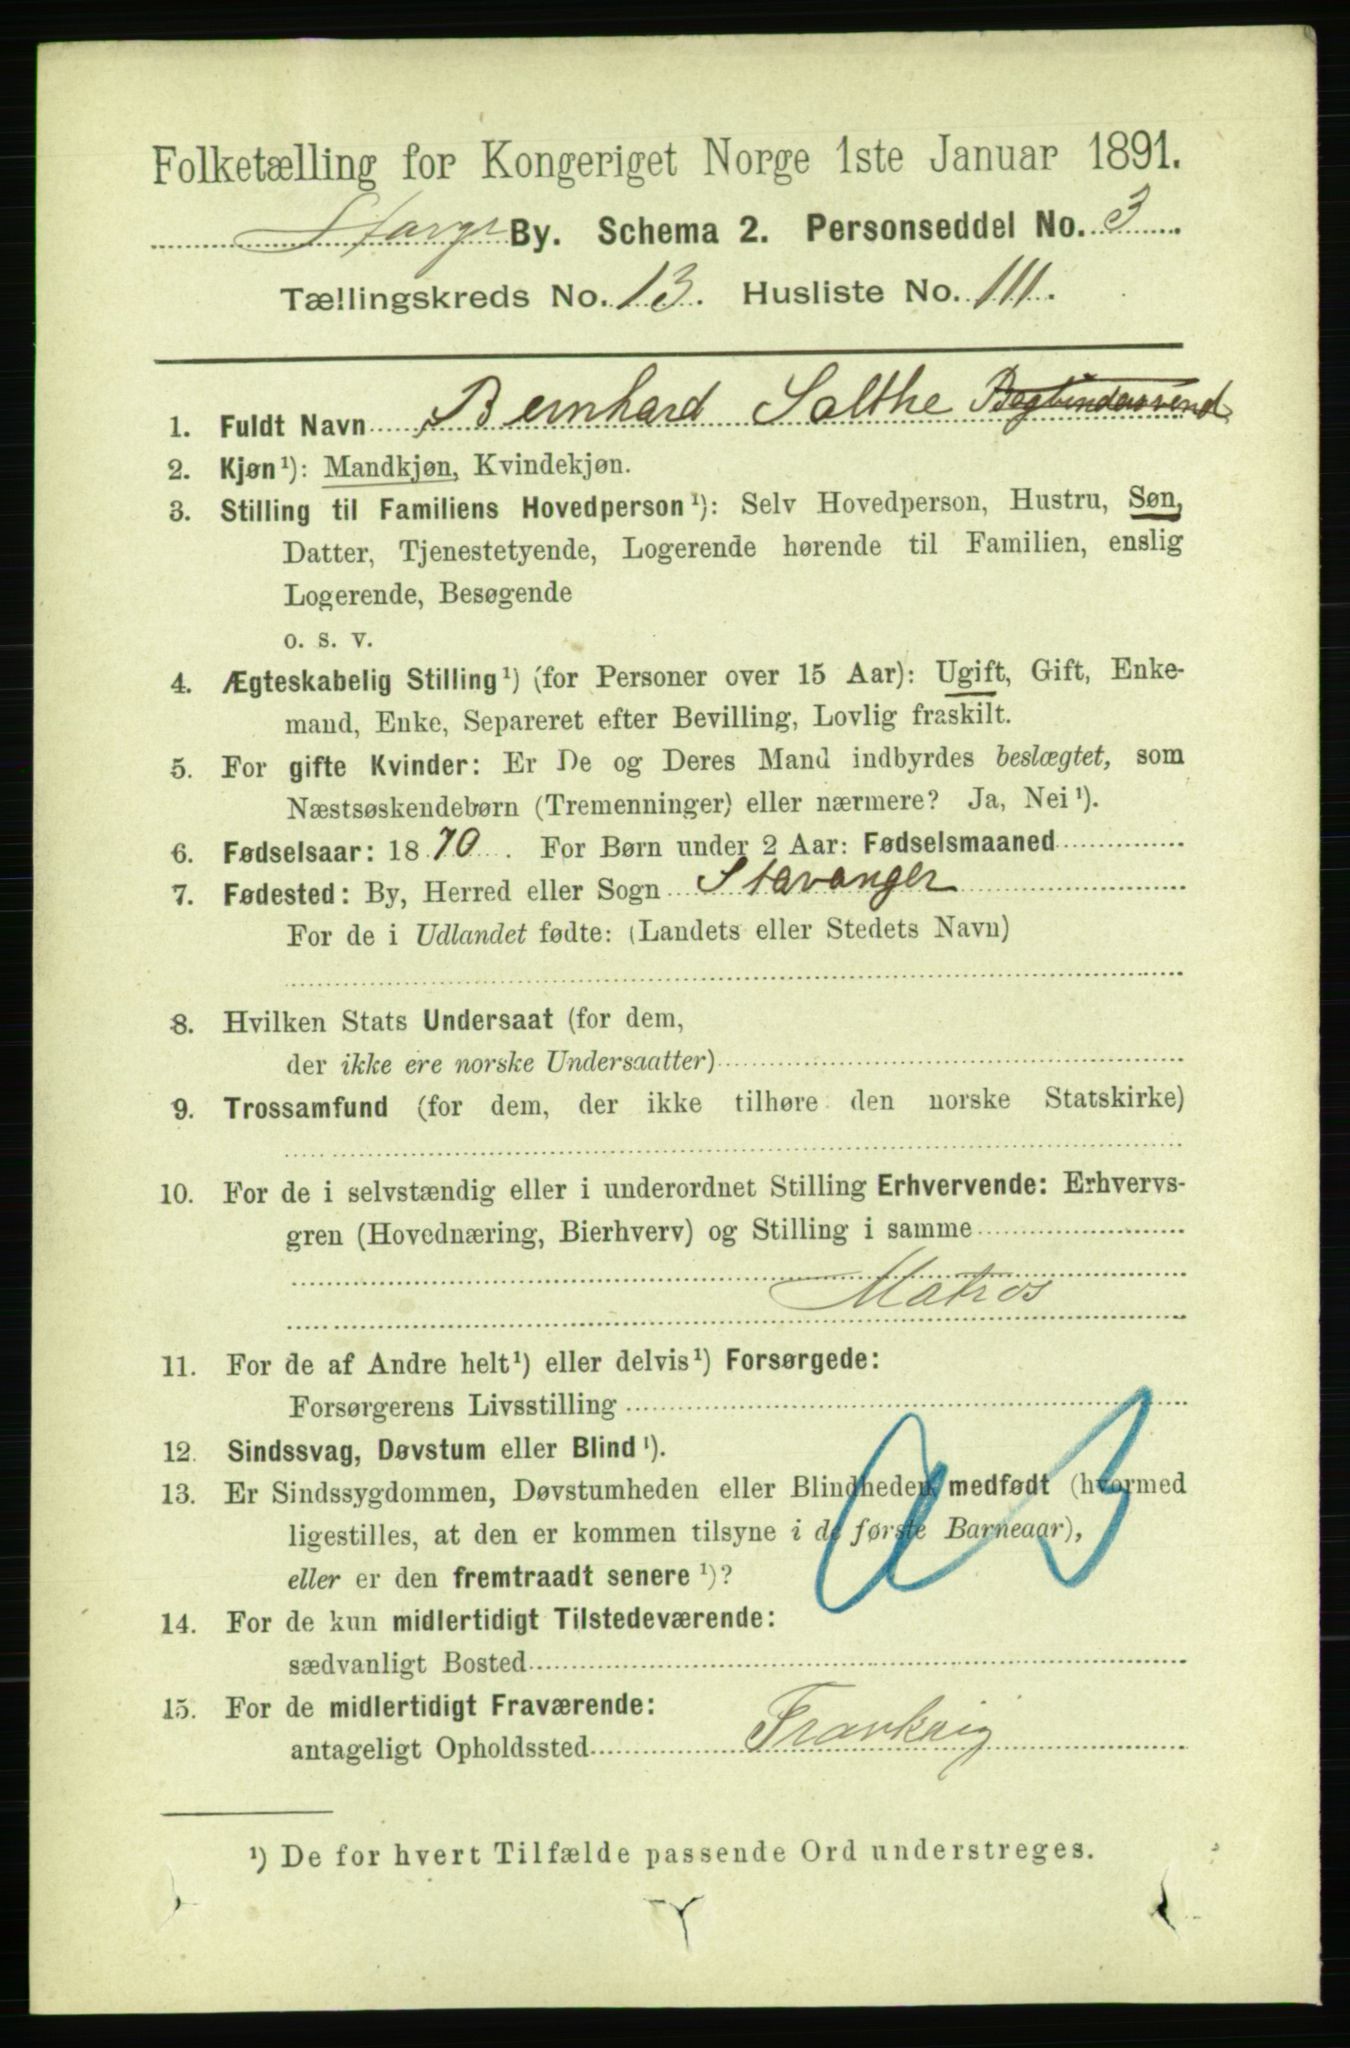 Folketælling for Kongeriget Norge 1ste Januar 1891.
Stavgr By. Schema 2. Personseddel No. 3
Tællingskreds No. 13. Husliste No. 111.
1. Fuldt Navn Bernhard Salthe Bogbindersvend
2. Kjøn¹): Mandkjøn, Kvindekjøn.
3. Stilling til Familiens Hovedperson¹): Selv Hovedperson, Hustru, Søn,
Datter, Tjenestetyende, Logerende hørende til Familien, enslig
Logerende, Besøgende
o. s. v.
4. Ægteskabelig Stilling¹) (for Personer over 15 Aar): Ugift, Gift, Enke-
mand, Enke, Separeret efter Bevilling, Lovlig fraskilt.
5. For gifte Kvinder: Er De og Deres Mand indbyrdes beslægtet, som
Næstsøskendebørn (Tremenninger) eller nærmere? Ja, Nei¹).
6. Fødselsaar: 1870. For Børn under 2 Aar: Fødselsmaaned
7. Fødested: By, Herred eller Sogn Stavanger
For de i Udlandet fødte: (Landets eller Stedets Navn)
8. Hvilken Stats Undersaat (for dem,
der ikke ere norske Undersaatter)
9. Trossamfund (for dem, der ikke tilhøre den norske Statskirke)
10. For de i selvstændig eller i underordnet Stilling Erhvervende: Erhvervs-
gren (Hovednæring, Bierhverv) og Stilling i samme
Matros
11. For de af Andre helt¹) eller delvis¹) Forsørgede:
Forsørgerens Livsstilling
12. Sindssvag, Døvstum eller Blind¹).
13. Er Sindssygdommen, Døvstumheden eller Blindheden medfødt (hvormed
ligestilles, at den er kommen tilsyne i de første Barneaar),
eller er den fremtraadt senere¹)?
14. For de kun midlertidigt Tilstedeværende:
sædvanligt Bosted
15. For de midlertidigt Fraværende:
antageligt Opholdssted Frankrig
¹) De for hvert Tilfælde passende Ord understreges.